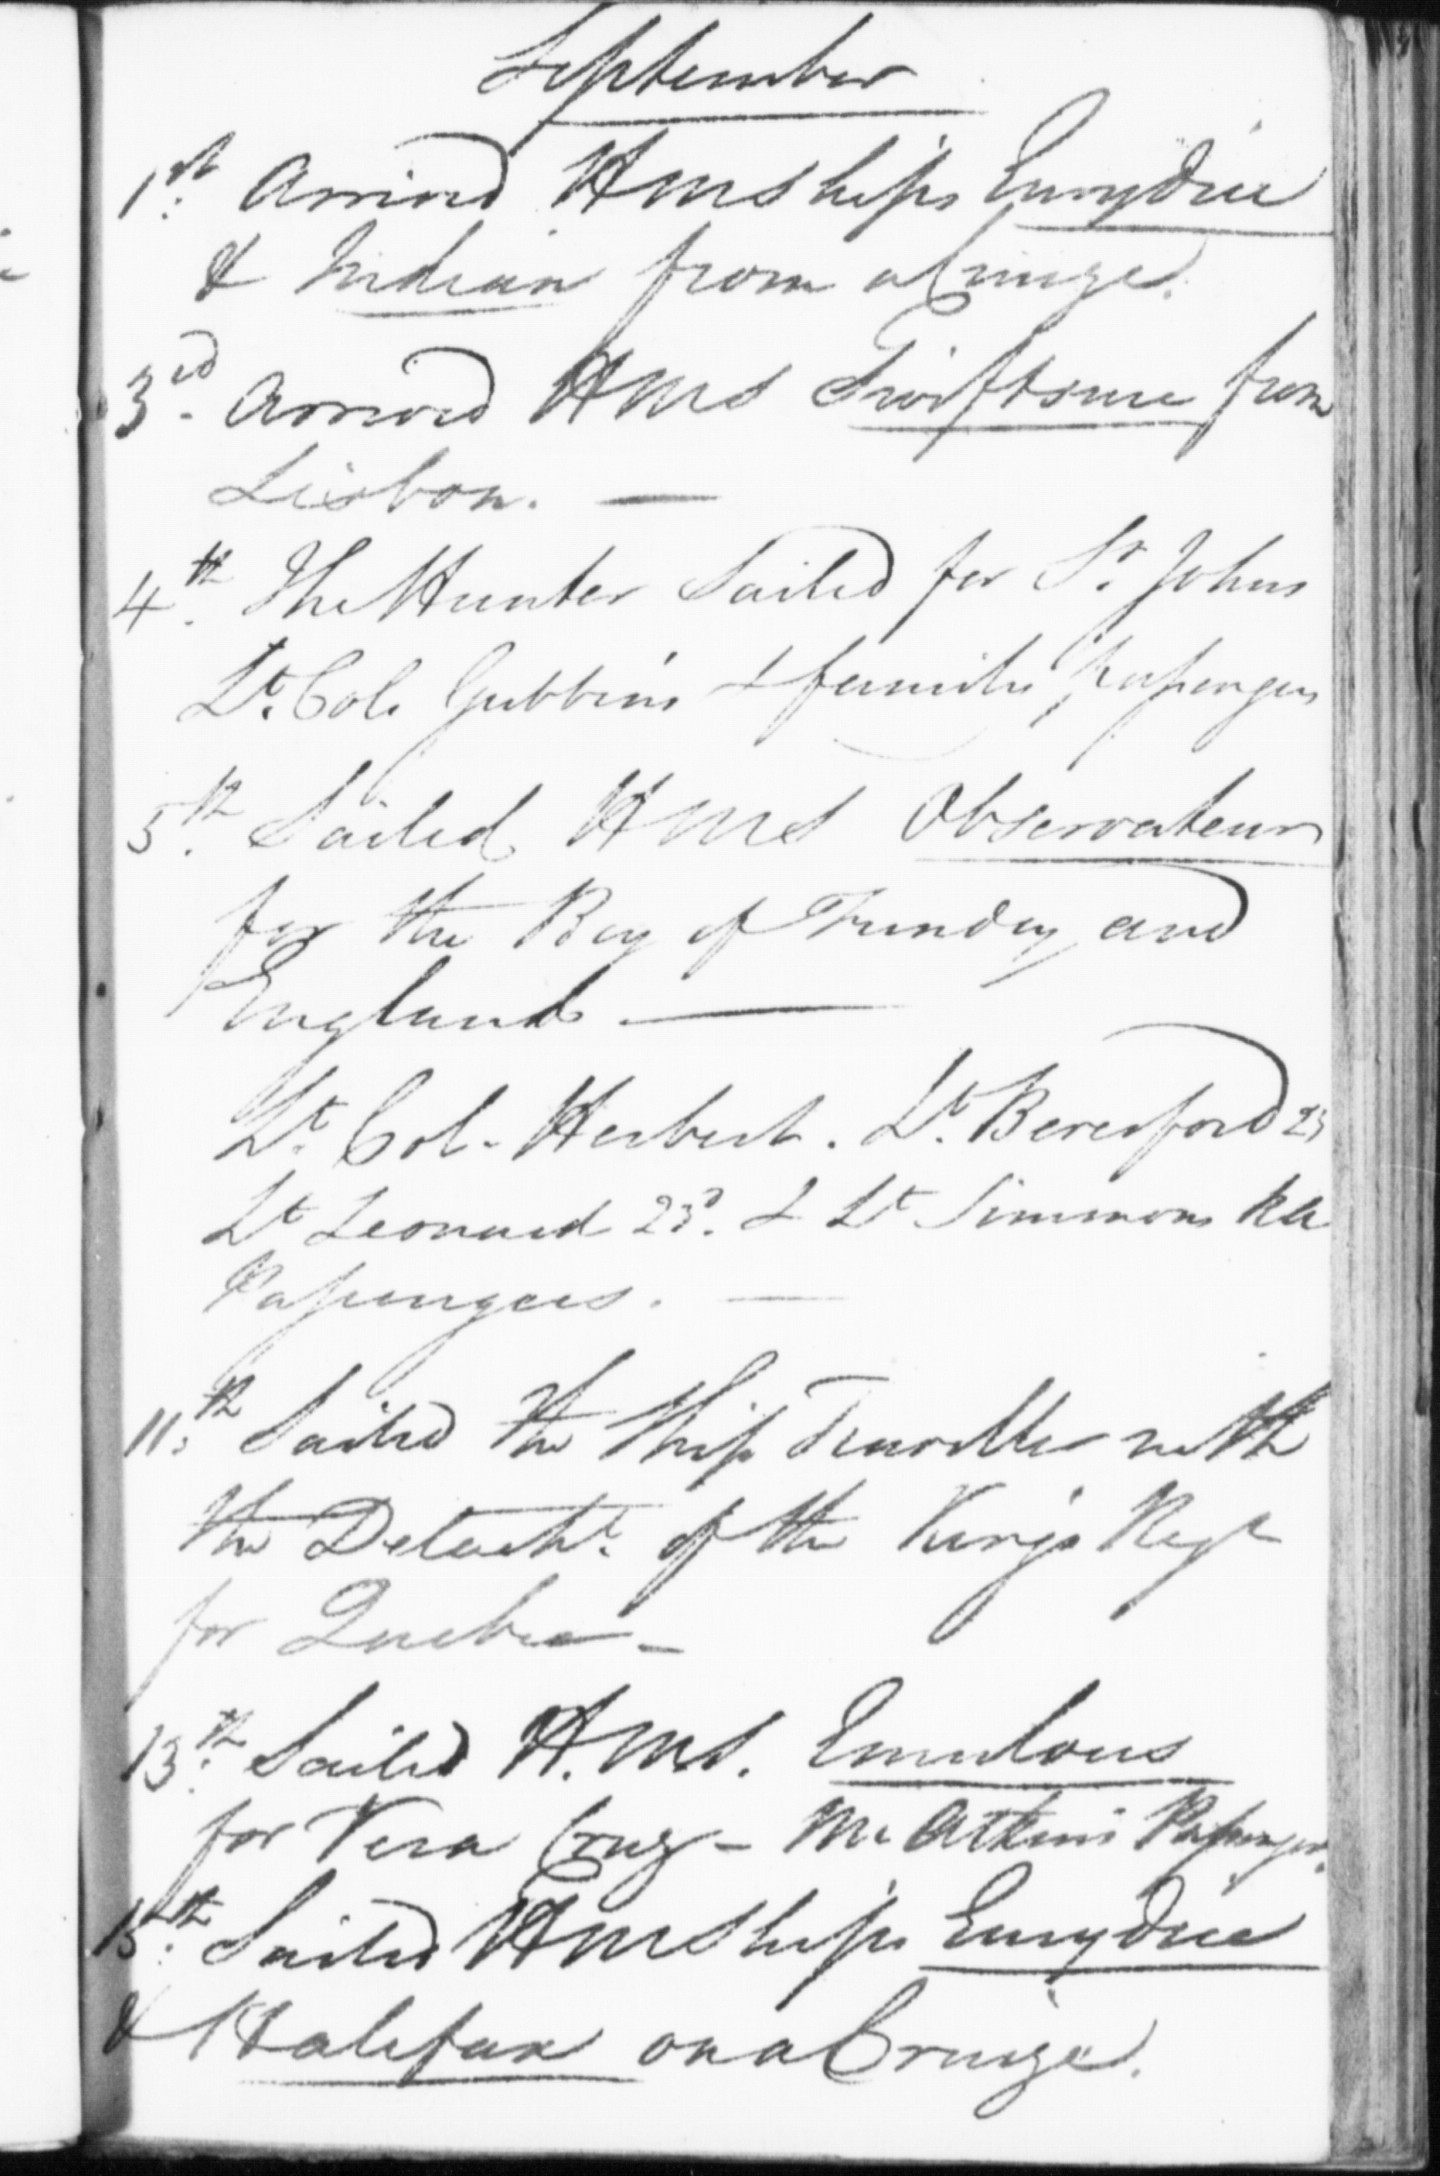 September
1st. Arrived HMShips Eurydice
& Indian from a Cruize.
3rd. Arrived HMS Swiftsure from
Lisbon. —
4th. The Hunter Sailed for St. Johns
Lt. Col. Gubbins & familie passengers
5th. Sailed HMS Observateur
for the Bay of Fundey and
England —
Lt. Col. Herbert. Lt. Beresford 23
Lt Leonard 23d. & Lt Simmons RA
Passengers. —
11th. Sailed the Ship Traveller with
the Detacht. of the King's Regt
for Quebec —
13th. Sailed H.MS. Emulous
for Vera Cruz — Mr Atkins Passenger.
15th. Sailed HMShips Eurydice
& Halifax on a Cruize.